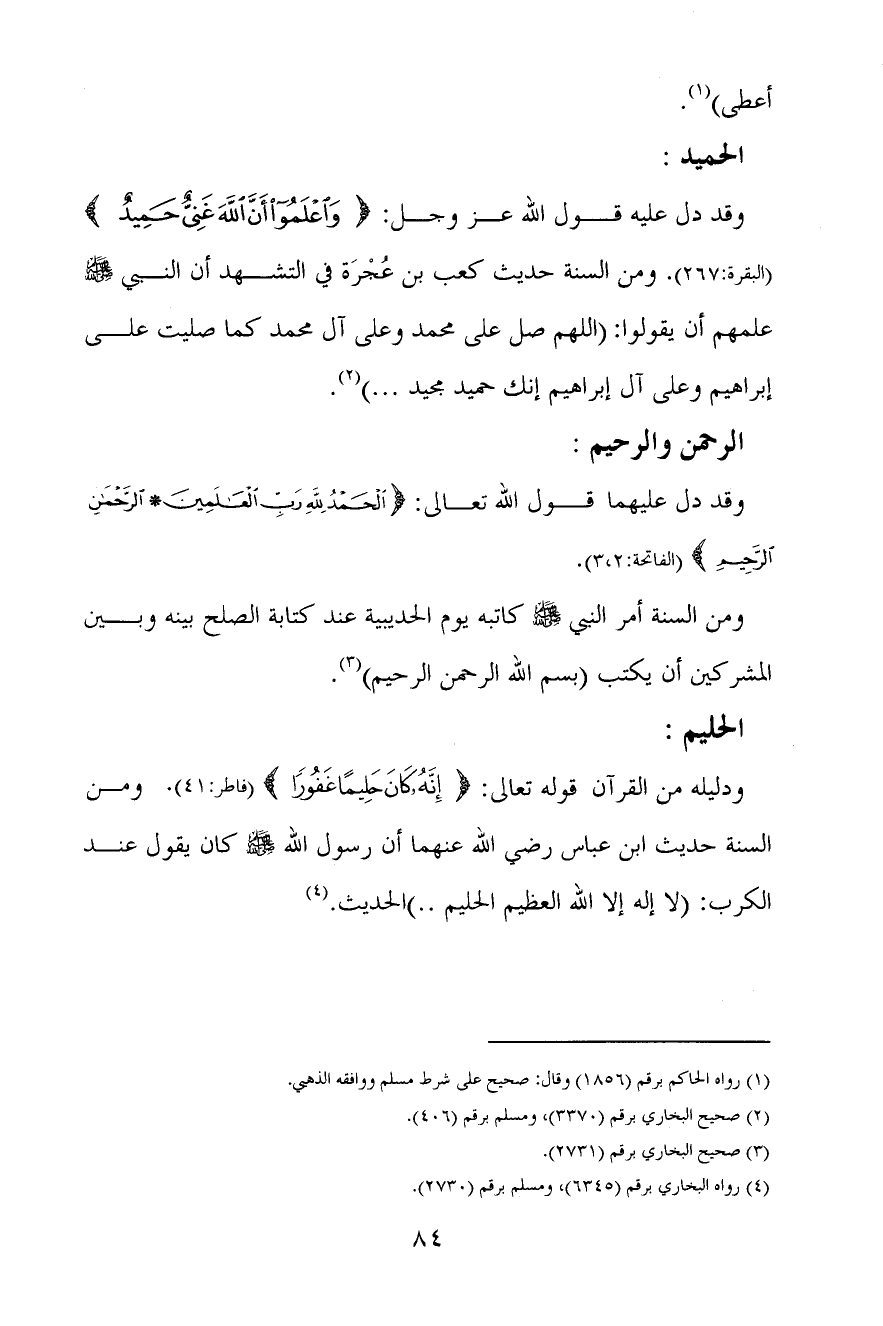 أعطى)(١).
الحميد :
وقد دل عليه قول الله عز وجل: ﴿ وَٱعْلَمُوٓا۟ أَنَّ ٱللَّهَ غَنِىٌّ حَمِيدٌ ﴾
(البقرة:٢٦٧). ومن السنة حديث كعب بن عُجْرَة في التشهد أن النبي ﷺ
علمهم أن يقولوا: (اللهم صل على محمد وعلى آل محمد كما صليت على
إبراهيم وعلى آل إبراهيم إنك حميد مجيد ...)(٢).
الرحمن والرحيم :
وقد دل عليهما قول الله تعالى: ﴿ ٱلْحَمْدُ لِلَّهِ رَبِّ ٱلْعَـٰلَمِينَ * ٱلرَّحْمَـٰنِ
ٱلرَّحِيمِ ﴾ (الفاتحة:٣،٢).
ومن السنة أمر النبي ﷺ كاتبه يوم الحديبية عند كتابة الصلح بينه وبين
المشركين أن يكتب (بسم الله الرحمن الرحيم)(٣).
الحليم :
ودليله من القرآن قوله تعالى: ﴿ إِنَّهُۥ كَانَ حَلِيمًا غَفُورًا ﴾ (فاطر:٤١). ومن
السنة حديث ابن عباس رضي الله عنهما أن رسول الله ﷺ كان يقول عند
الكرب: (لا إله إلا الله العظيم الحليم ..)الحديث.(٤)
(١) رواه الحاكم برقم (١٨٥٦) وقال: صحيح على شرط مسلم ووافقه الذهبي.
(٢) صحيح البخاري برقم (٣٣٧٠)، ومسلم برقم (٤٠٦).
(٣) صحيح البخاري برقم (٢٧٣١).
(٤) رواه البخاري برقم (٦٣٤٥)، ومسلم برقم (٢٧٣٠).
٨٤